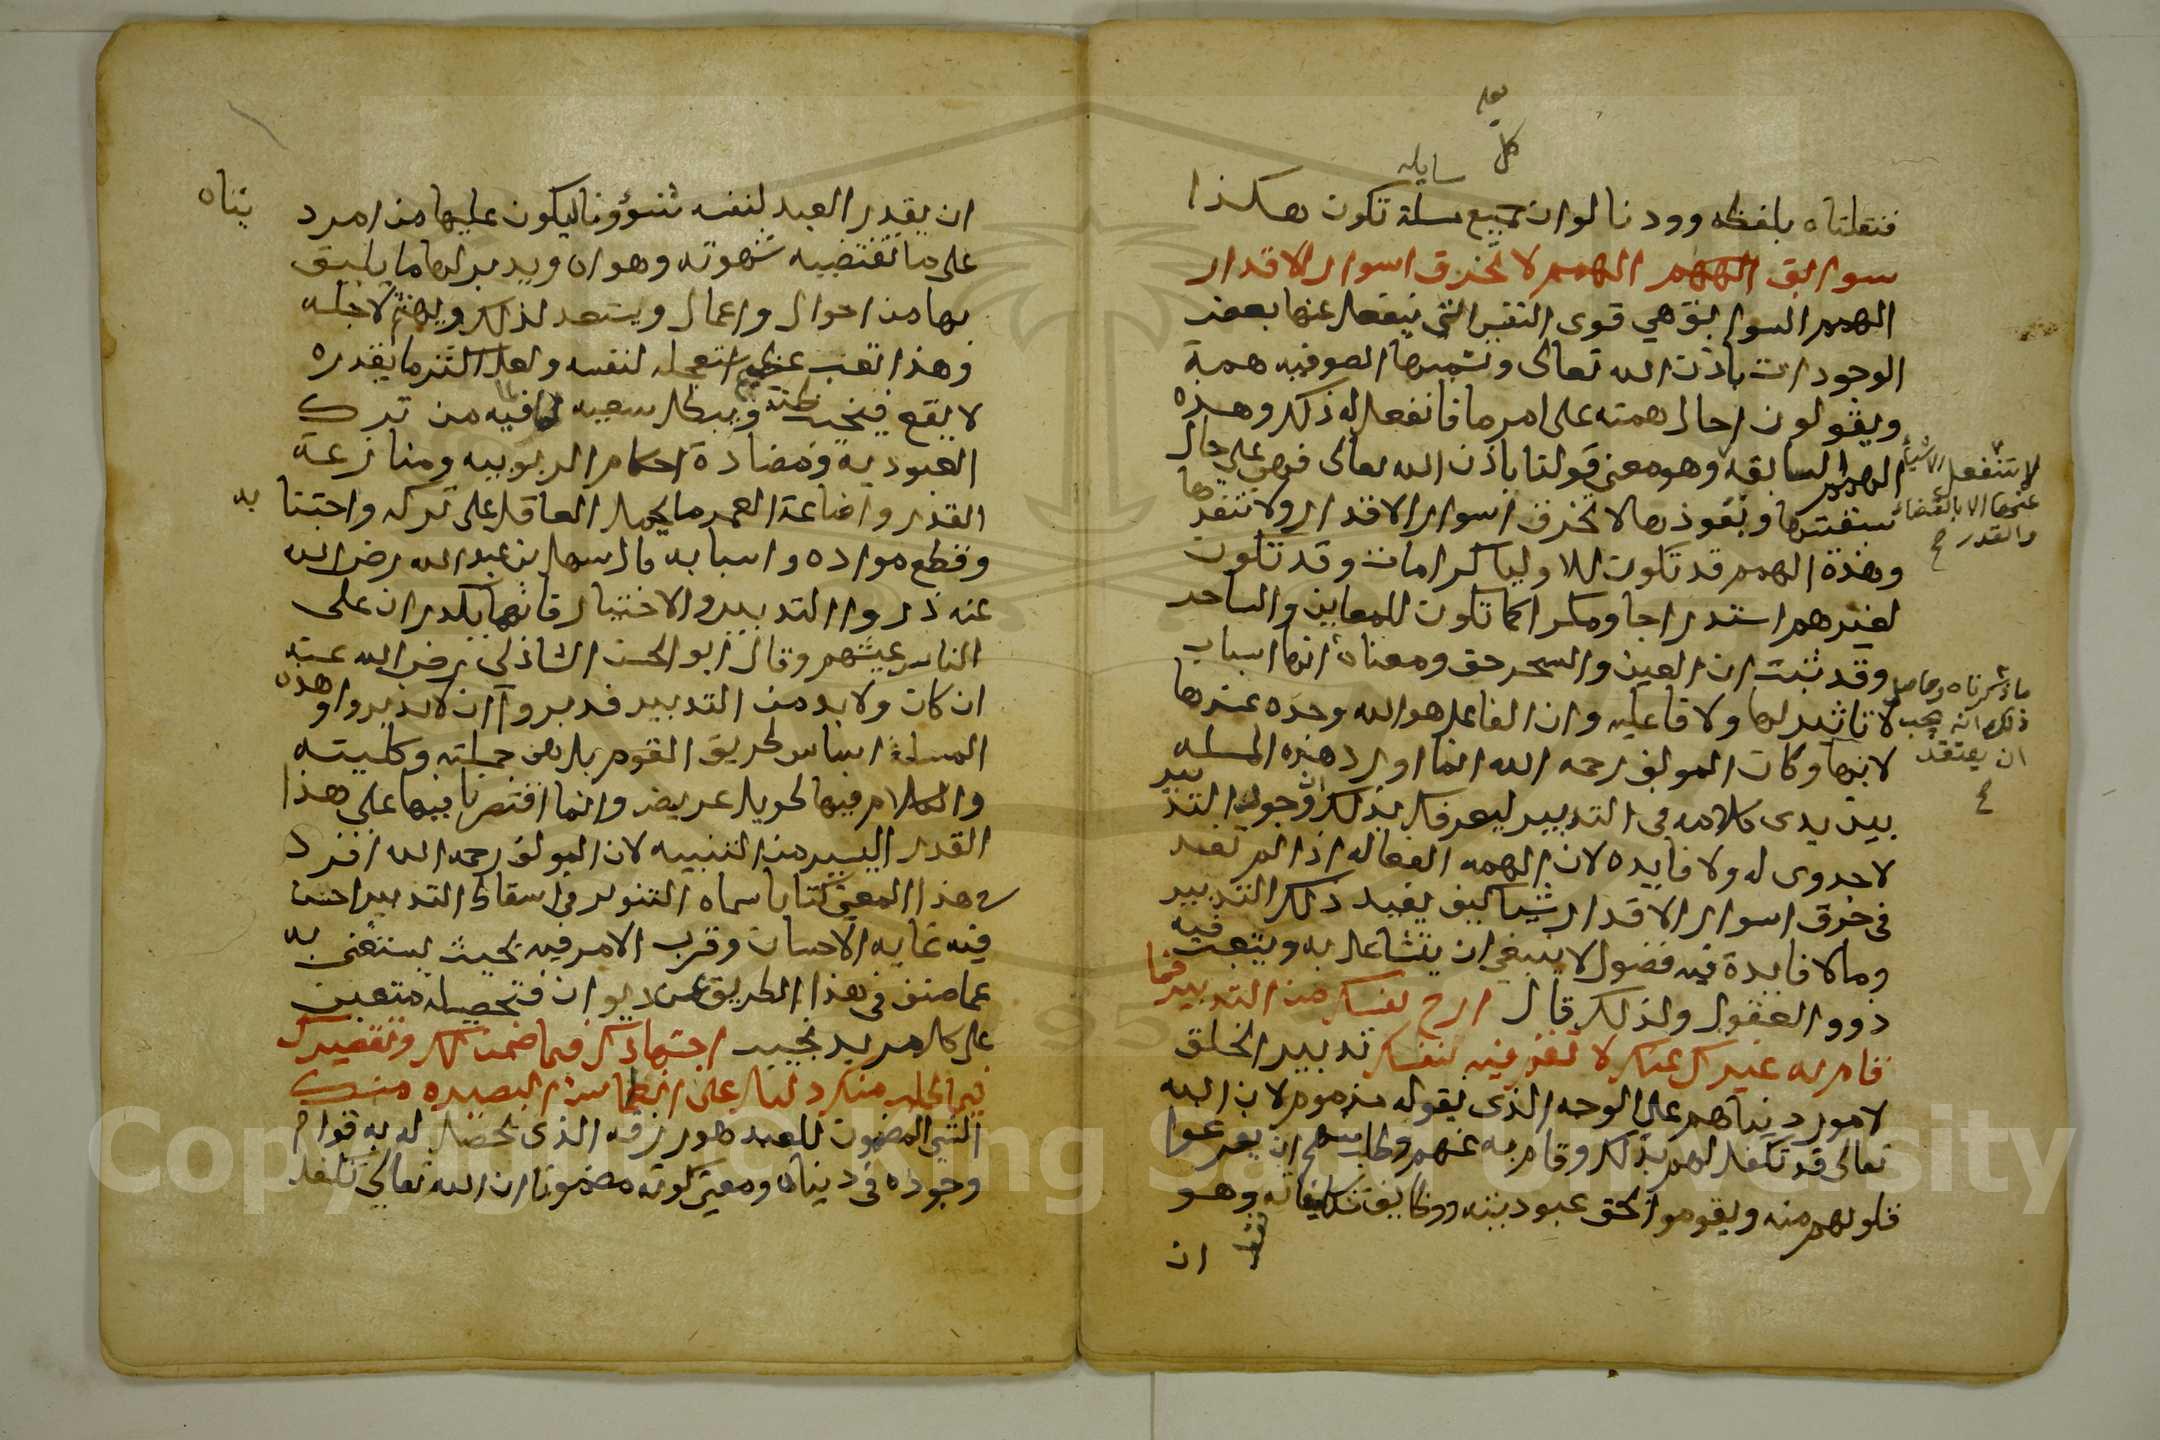 فنقلناه بلفظه وودنا لو ان جميع مسلة تكون هكذا
سوابق الهمم لا تخرق اسوار الاقدار
الهمم السوابق هي قوى النفس التي ينفعل عنها بعض
الوجودات باذن الله تعالى وتسميها الصوفيه همة
ويقولون احال همته على امر ما فانفعل له ذلك وهذه
الهمم السابقه وهو معنى قولنا باذن الله تعالى فهي على حال
لا تنفعل الاشيا
عنها الا بالقضاء
والقدر
سبقتها ونفوذها لا تخرق اسوار الاقدار ولا تنفذها
وهذه الهمم قد تكون للاوليا كرامات وقد تكون
لغيرهم استدراجا ومكرا كما تكون للمعاين والساحر
وقد ثبت ان العين والسحر حق ومعناه انها اسباب
لا تاثير لها ولا فاعليه وان الفاعل هو الله وحده عندها
ما ذكرناه وحاصل
ذلك انه يجب
ان يعتقد
لا بها وكان المولف رحمه الله انما اورد هذه المسله
بين يدى كلامه في التدبير ليعرفك بذلك ان وجود التدبير
لا جدوى له ولا فايده لان الهمه الفعاله اذا لم تفد
في خرق اسوار الاقدار شيا كيف يفيد ذلك التدبير
وما لا فايدة فيه فضول لا ينبغي ان يتشاغل به ويتعب فيه
ذوو العقول ولذلك قال ارح نفسك من التدبير فما
قام به غيرك عنك لا تقم فيه لنفسك تدبير الخلق
لامور دنياهم على الوجه الذى يقوله مذموم لان الله
تعالى قد تكفل لهم بذلك وقام به عنهم وطلب منهم ان يفرغوا
قلوبهم منه ويقوموا بحق عبوديته ووظايف تكليفاته وهو
ان
ان يقدر العبد لنفسه شوونا يكون عليها من امر دنياه
على ما تقتضيه شهوته وهواه ويدبر لها ما يليق
بها من احوال واعمال ويستعد لذلك ويهتم لاجله
وهذا تعب عظيم استعجله لنفسه ولعل اكثر ما يقدره
لا يقع فيخيب ظنه ويبطل سعيه لما فيه من ترك
العبودية ومضادة احكام الربوبيه ومنازعة
القدر واضاعة العمر ما يحمل العاقل على تركه واجتنابه
وقطع مواده واسبابه قال سهل بن عبد الله رضى الله
عنه ذروا التدبير والاختيار فانهما يكدران على
الناس عيشهم وقال ابو الحسن الشاذلي رضى الله عنه
ان كان ولا بد من التدبير فدبروا ان لا تدبروا وهذه
المسلة اساس طريق القوم بل هي جملته وكليته
والكلام فيها طويل عريض وانما اقتصرنا فيها على هذا
القدر اليسير من التنبيه لان المولف رحمه الله افرد
في هذا المعنى كتابا سماه التنوير في اسقاط التدبير احسن
فيه غايه الاحسان وقرب الامر فيه بحيث يستغنى به
عما صنف في هذا الطريق من ديوان فتحصيله متعين
على كل مريد نجيب اجتهادك فيما ضمن لك وتقصيرك
فيما طلب منك دليل على انطماس البصيره منك
الشي المضمون للعبد هو رزقه الذى يحصل له به قوام
وجوده في دنياه ومعنى كونه مضمونا ان الله تعالى تكفل